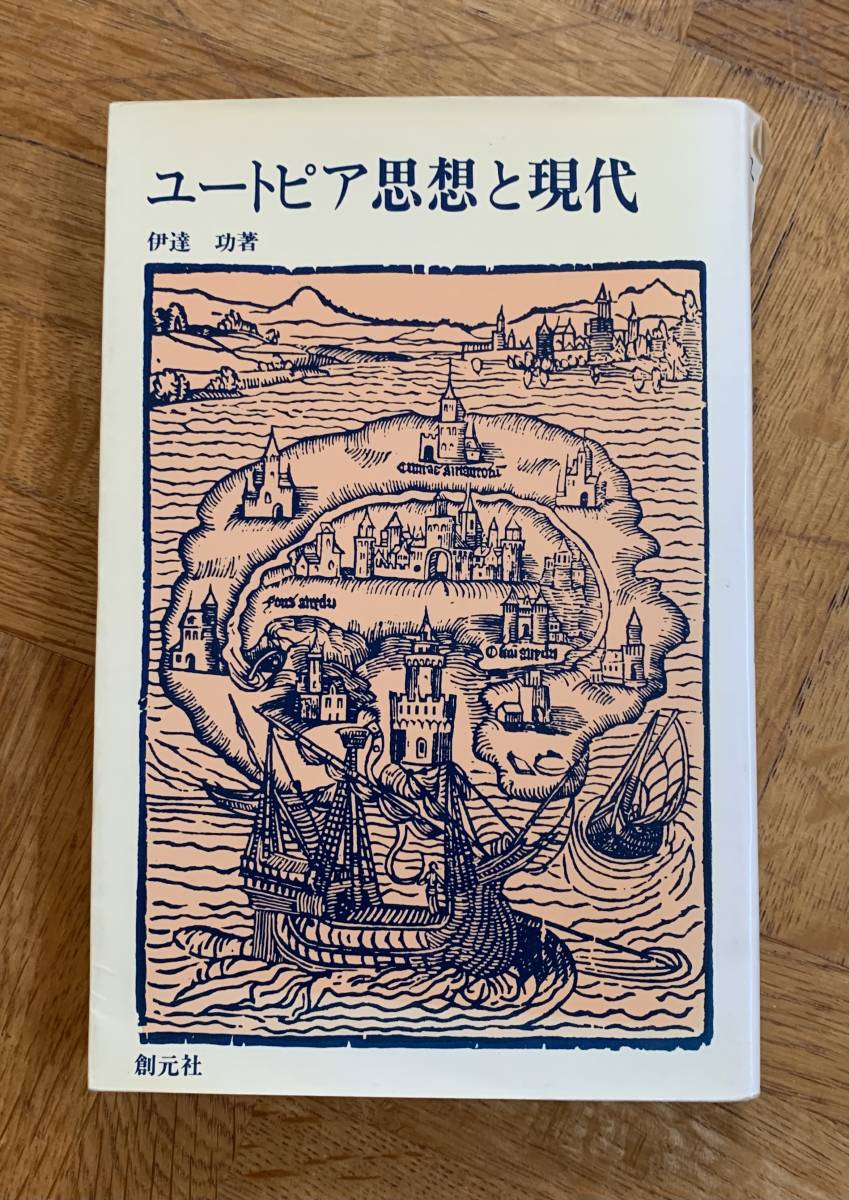 ユートピア思想と現代
伊達 功著
fons anydri
創元社